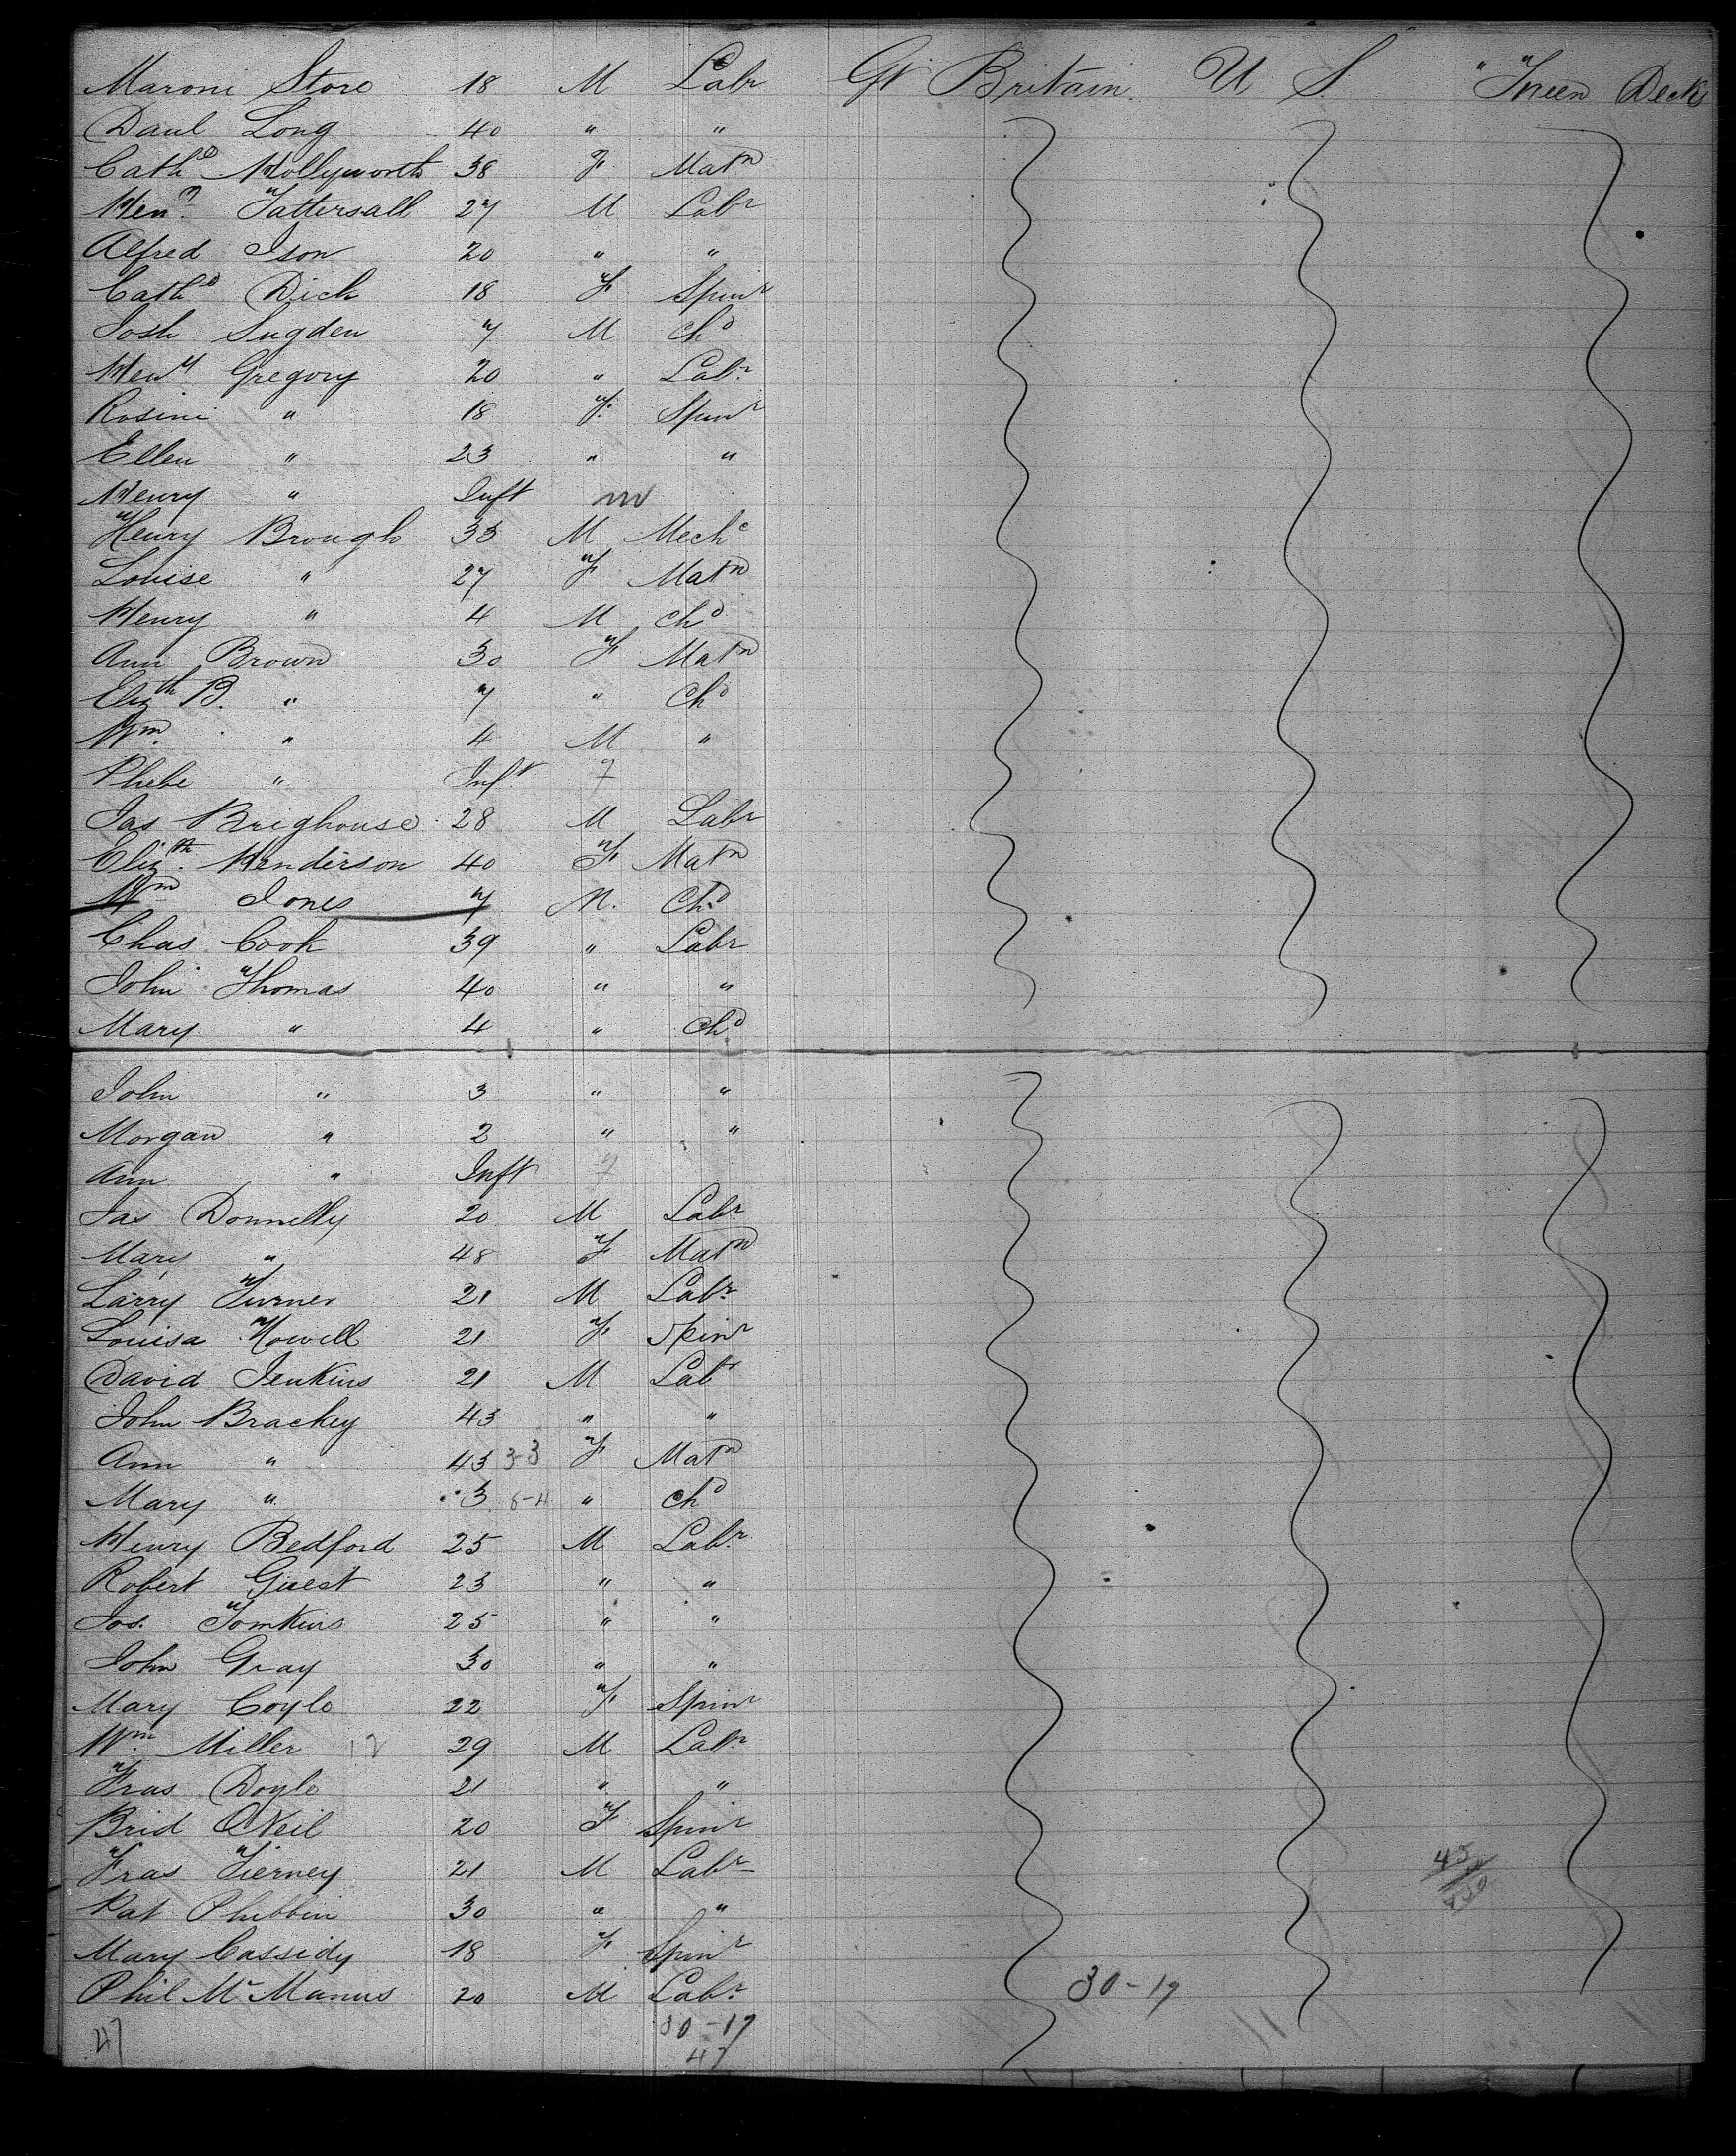 Maroni Store 18 M Labr Gt Britain U S "Tween Decks
Danl Long 40 " "
Cath Hollyworth 38 F Matn
Heny Tattersall 27 M Labr
Alfred Ison 20 " "
Cath Dick 18 F Spinr
Josh Sugden 7 M Chd
Heny Gregory 20 " Labr
Rosini " 18 F Spinr
Ellen " 23 " "
Henry " Inft m
Henry Brough 33 M Mechc
Louise " 27 F Matn
Henry " 4 M Chd
Ann Brown 30 F Matn
Elizth B. " 7 " Chd
Wm " 4 M "
Phebe " Inft F
Jas Brighouse 28 M Labr
Elizth Henderson 40 F Matn
Wm Jones 7 M. Chd
Chas Cook 39 " Labr
John Thomas 40 " "
Mary " 4 " Chd
John " 3 " "
Morgan " 2 " "
Ann " Inft F
Jas Donnelly 20 M Labr
Mary " 48 F Matn
Larry Turner 21 M Labr
Louisa Howell 21 F Spinr
David Jenkins 21 M Labr
John Brackey 43 " "
Ann " 43 33 F Matn
Mary " 3 " Chd
Henry Bedford 25 M Labr
Robert Guest 23 " "
Jos. Tomkins 25 " "
John Gray 30 " "
Mary Coyle 22 F Spinr
Wm Miller 12 29 M Labr
Fras Doyle 21 " "
Brid ONeil 20 F Spinr
Fras Tierney 21 M Labr 45
Pat Phibbin 30 " "
Mary Cassidy 18 F Spinr
Phil McManus 20 M Labr 30-17
30-17
47 47